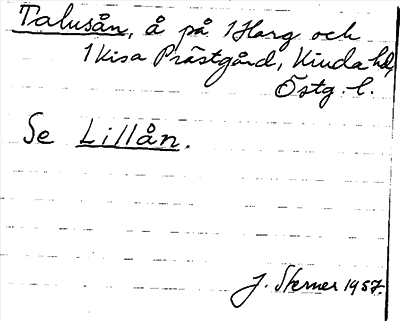 Talusån, å på 1 Harg och
1 Kisa Prästgård, Kinda hd,
Östg. l.
Se Lillån.
J. Sterner 1957.